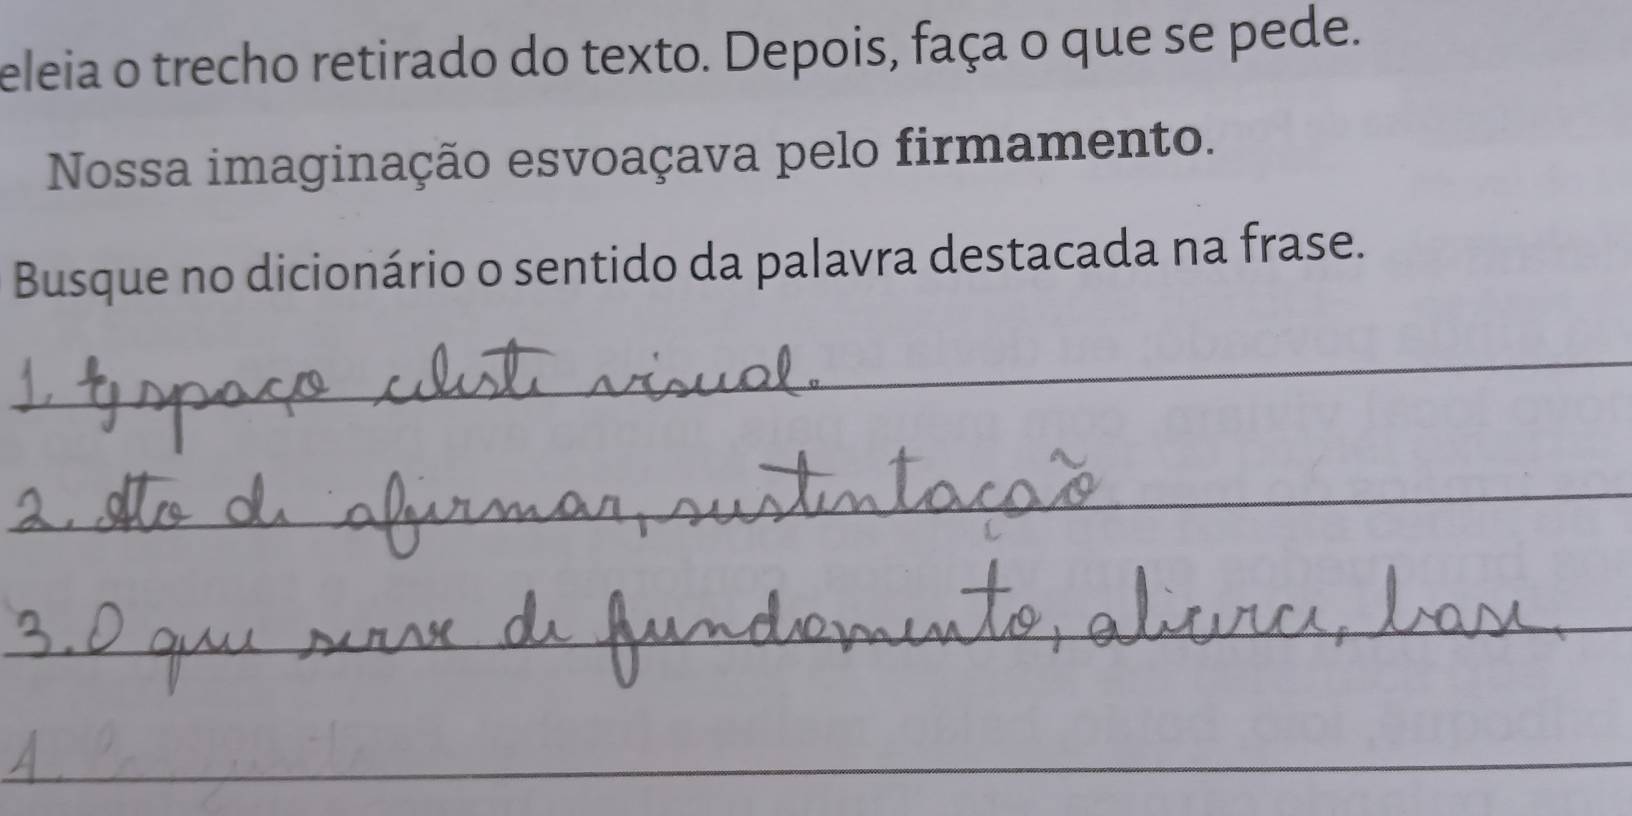 eleia o trecho retirado do texto. Depois, faça o que se pede.
Nossa imaginação esvoaçava pelo firmamento.
Busque no dicionário o sentido da palavra destacada na frase.
1. Espaço celeste visual.
2. Ato de afirmar, sustentação
3. O que serve de fundamento, alicerce, base.
4.